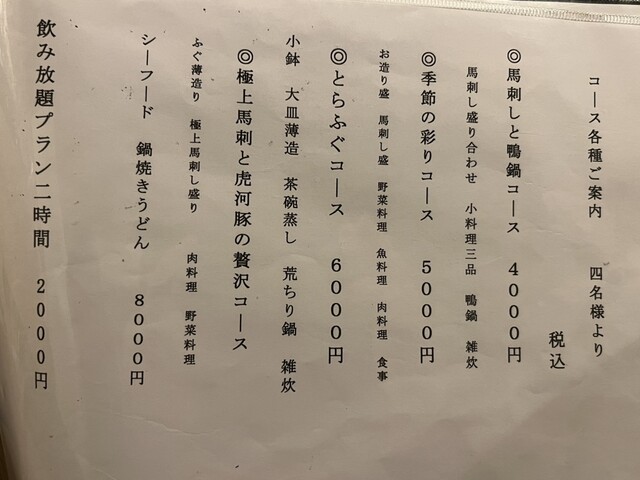 コース各種ご案内　四名様より
税込
◎馬刺しと鴨鍋コース　4000円
馬刺し盛り合わせ　小料理三品　鴨鍋　雑炊
◎季節の彩りコース　5000円
お造り盛　馬刺し盛　野菜料理　魚料理　肉料理　食事
◎とらふぐコース　6000円
小鉢　大皿薄造　茶碗蒸し　荒ちり鍋　雑炊
◎極上馬刺と虎河豚の贅沢コース
ふぐ薄造り　極上馬刺し盛り　肉料理　野菜料理
シーフード　鍋焼きうどん　8000円
飲み放題プラン二時間　2000円